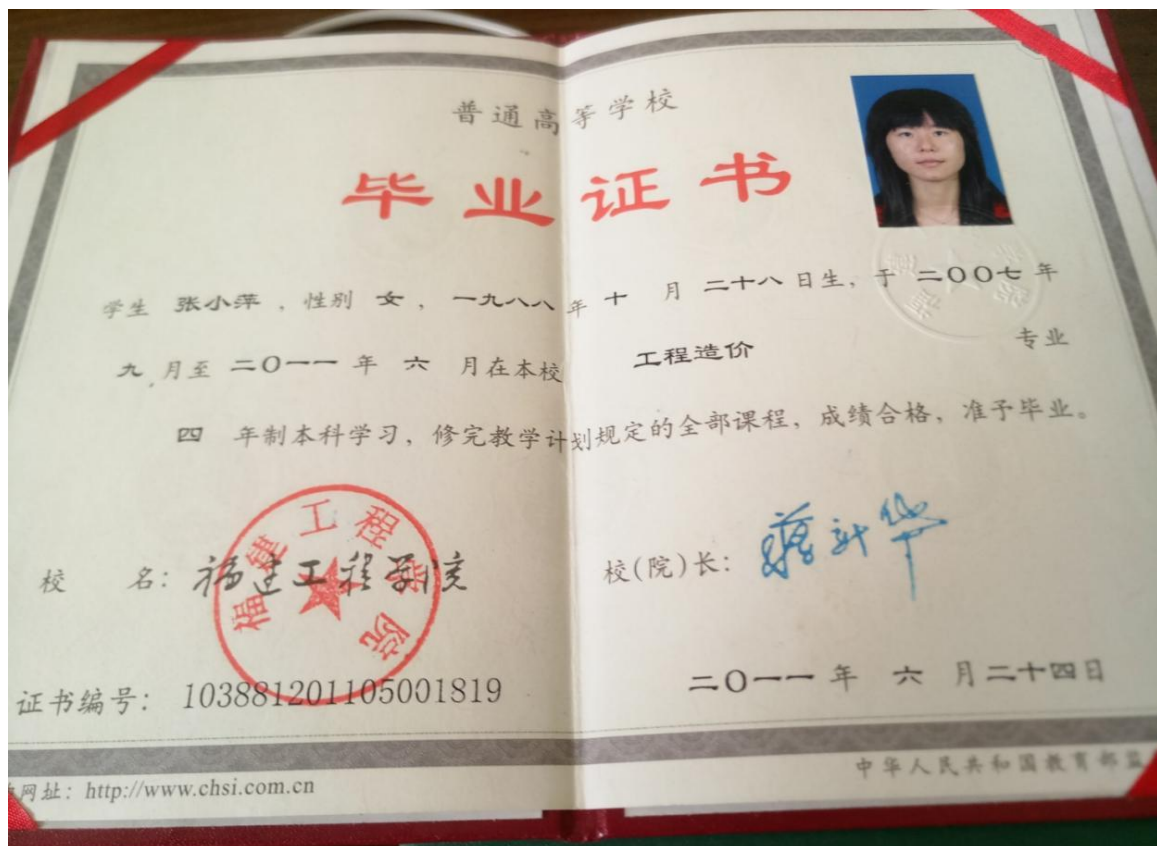 普通高等学校
毕业证书
学生 张小萍 ，性别 女 ，一九八八 年 十 月 二十八 日生，于 二〇〇七 年
九 月至 二〇一一 年 六 月在本校 工程造价 专业
四 年制本科学习，修完教学计划规定的全部课程，成绩合格，准予毕业。
福建工程学院
校 名：福建工程学院
校(院)长：
证书编号：103881201105001819
二〇一一 年 六 月二十四日
网址：http://www.chsi.com.cn
中华人民共和国教育部监